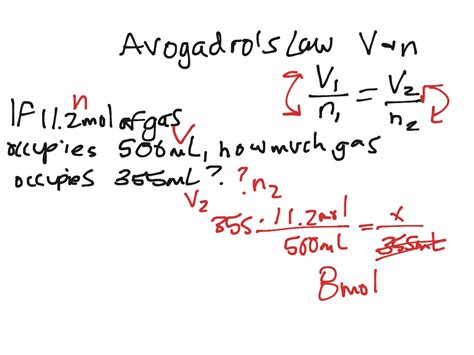 Avogadro's Law V α n
V₁/n₁ = V₂/n₂
n
If 11.2mol of gas
V
occupies 500mL, how much gas
occupies 355mL? ? n₂
V₂
355 · 11.2mol/500mL = x/355mL
8mol